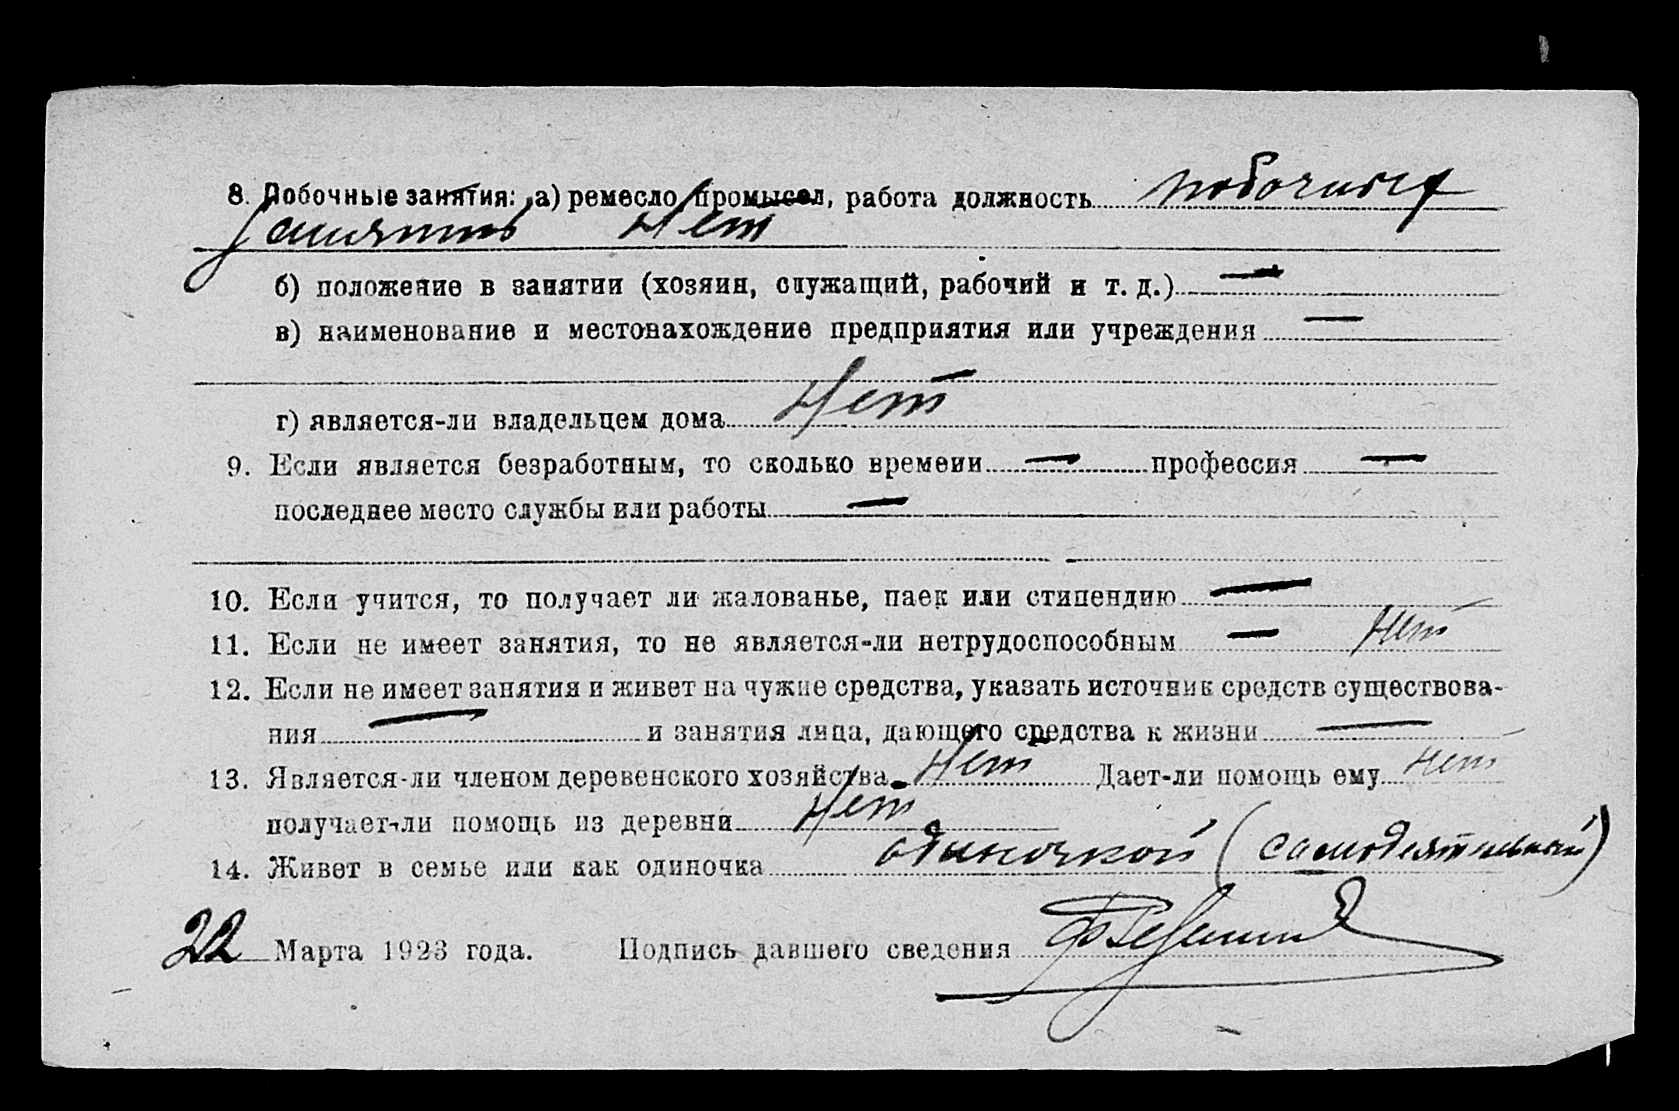 8. Побочные занятия: а) ремесло, промысел, работа должность побочных
занятий Нет
б) положение в занятии (хозяин, служащий, рабочий и т. д.) —
в) наименование и местонахождение предприятия или учреждения —
г) является-ли владельцем дома Нет
9. Если является безработным, то сколько времени — профессия —
последнее место службы или работы —
10. Если учится, то получает ли жалованье, паек или стипендию —
11. Если не имеет занятия, то не является-ли нетрудоспособным — Нет
12. Если не имеет занятия и живет на чужие средства, указать источник средств существова-
ния — и занятия лица, дающего средства к жизни —
13. Является-ли членом деревенского хозяйства Нет Дает-ли помощь ему нет
получает-ли помощь из деревни Нет
14. Живет в семье или как одиночка одиночкой (самодеятельный)
22 Марта 1923 года. Подпись давшего сведения